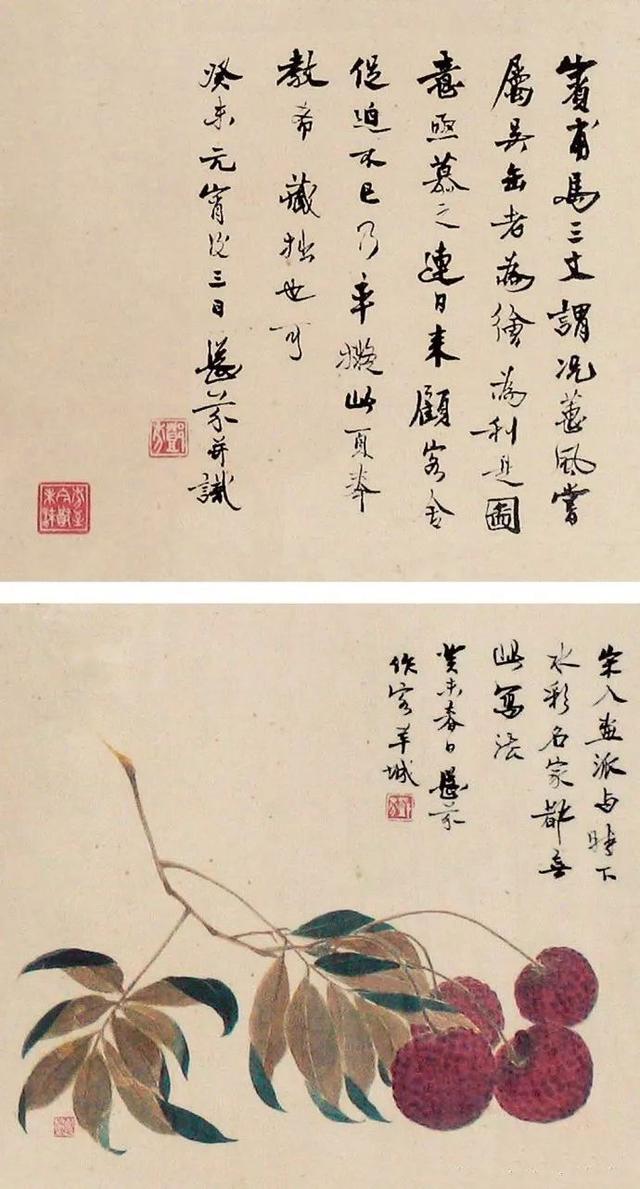 賓甫馬三丈謂況蕙風嘗
屬吳缶老荔繪為利是圖
意慕之連日來顧客舍
促迫不已乃率擬此頁奉
教希藏拙也可
癸未元宵後三日芬并識
宋人畫派与時下
水彩名家都喜
此寫法
癸未春日芬
作客羊城